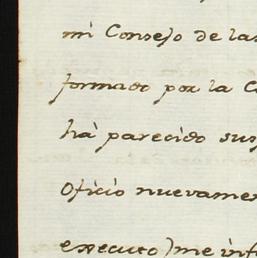 mi Consejo de las
formado por la C
hà parecido sus
Oficio nuevamen
executo) me inf